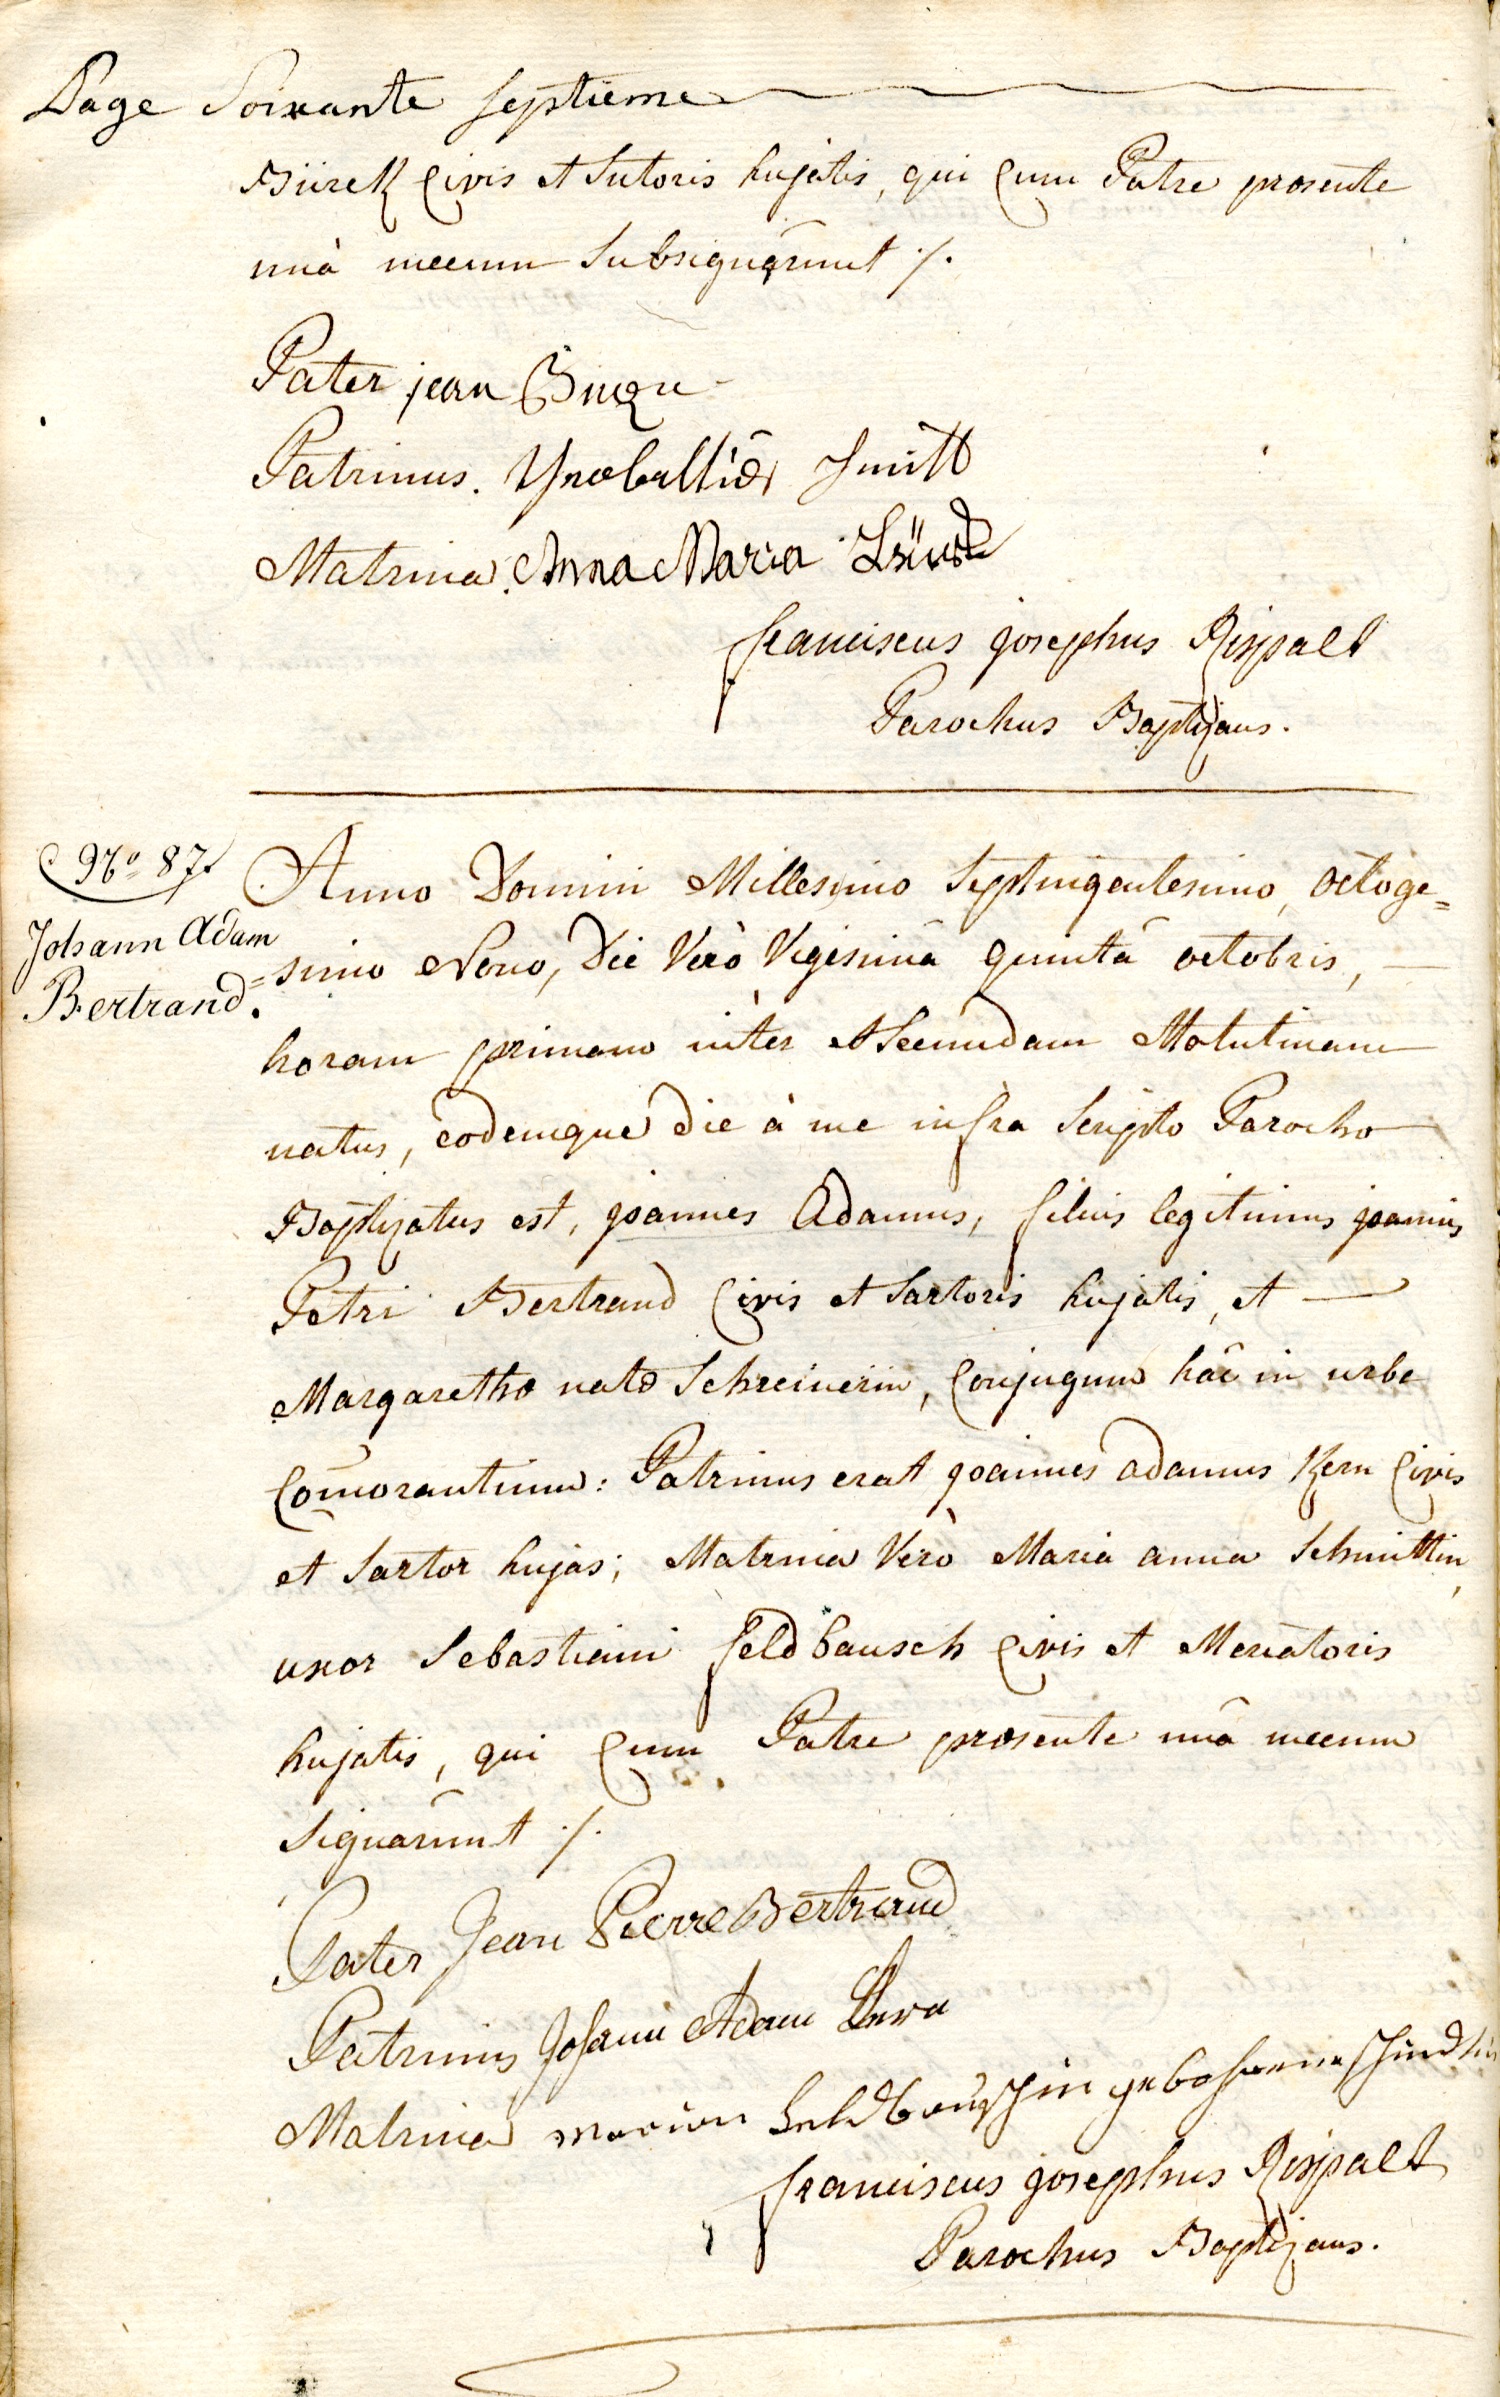 Page Soixante septieme
Bürck Civis et Sutoris hujatis, qui Cum Patre præsente
unà mecum Subsignârunt ./.
Pater jean
Patrinus. Smitt
Matrina. Anna Maria
franciscus josephus Rispalt
Parochus Baptizans.
No 87.
Johann Adam
Bertrand.
Anno Domini Millesimo Septingentesimo, octoge=
=simo Nono, Die Verò Vigesimâ quintâ octobris,
horam primam inter et Secundam Matutinam
natus, eodemque die à me infra Scripto Parocho
Baptizatus est, joannes Adamus, filius legitimus joannis
Petri Bertrand Civis et Sartoris hujatis, et
Margarethæ natæ Schreinerin, Conjugum hâc in urbe
Com̄orantium: Patrinus erat joannes adamus Kern Civis
et Sartor hujas; Matrina Verò Maria anna Schmittin,
uxor Sebastiani feldbausch Civis et Mercatoris
hujatis, qui Cum Patre præsente unâ mecum
Signârunt ./.
Pater Jean Pierre Bertrand
Patrinus Johann Adam Kern
Matrina feldbauschin gebohrene
franciscus josephus Rispalt
Parochus Baptizans.